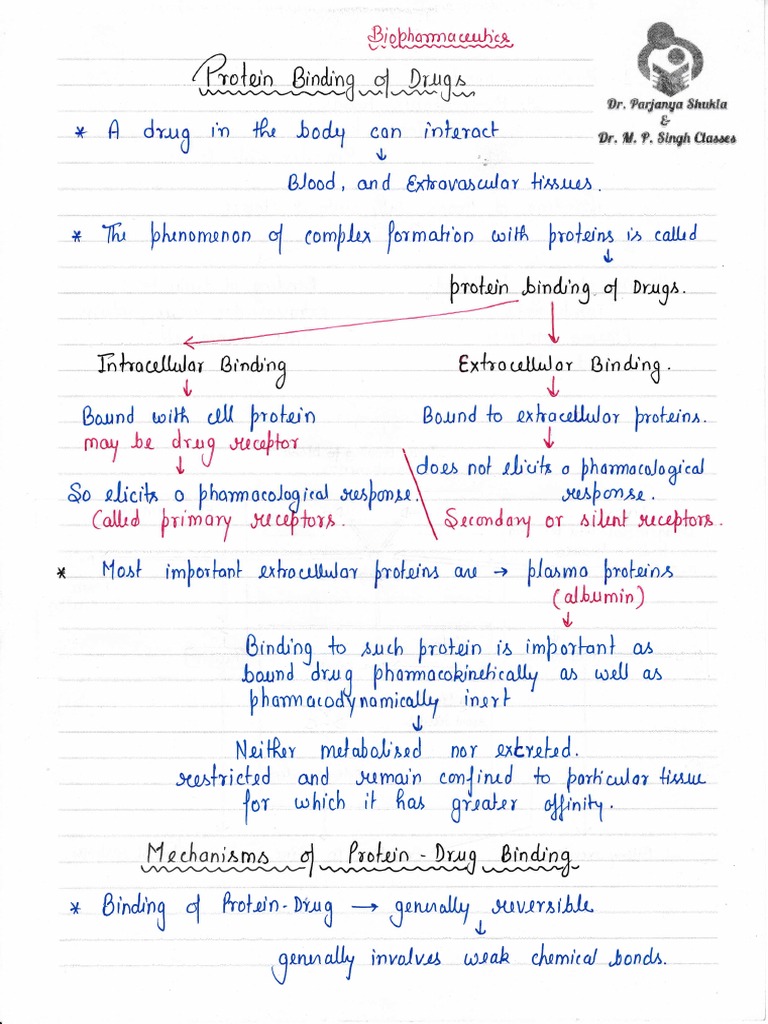 Biopharmaceutics
Protein Binding of Drugs
Dr. Parjanya Shukla
&
Dr. M. P. Singh Classes
* A drug in the body can interact
↓
Blood, and Extravascular tissues.
* The phenomenon of complex formation with proteins is called
↓
protein binding of Drugs.
Intracellular Binding
↓
Bound with cell protein
may be drug receptor
↓
So elicits a pharmacological response.
Called primary receptors.
Extracellular Binding.
↓
Bound to extracellular proteins.
↓
does not elicits a pharmacological
response.
Secondary or silent receptors.
* Most important extracellular proteins are → plasma proteins
(albumin)
↓
Binding to such protein is important as
bound drug pharmacokinetically as well as
pharmacodynamically inert
↓
Neither metabolised nor excreted.
restricted and remain confined to particular tissue
for which it has greater affinity.
Mechanisms of Protein-Drug Binding
* Binding of Protein-Drug → generally reversible
↓
generally involves weak chemical bonds.